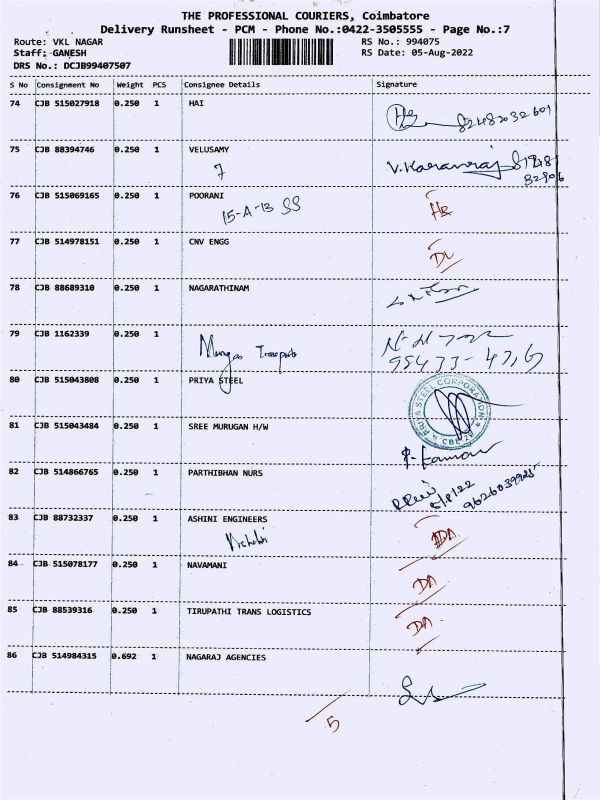 THE PROFESSIONAL COURIERS, Coimbatore
Delivery Runsheet - PCM - Phone No.:0422-3505555 - Page No.:7
Route: VKL NAGAR RS No.: 994075
Staff: GANESH RS Date: 05-Aug-2022
DRS No.: DCJB99407507
S No Consignment No Weight PCS Consignee Details Signature
74 CJB 515027918 0.250 1 HAI
8248232601
75 CJB 88394746 0.250 1 VELUSAMY
7 V.Karanraj
32906
76 CJB 515069165 0.250 1 POORANI
15-A-13 SS
77 CJB 514978151 0.250 1 CNV ENGG
DL
78 CJB 88689310 0.250 1 NAGARATHINAM
79 CJB 1162339 0.250 1
Murugan Transports
80 CJB 515043808 0.250 1 PRIYA STEEL
PRIYA STEEL CORPORATION
81 CJB 515043484 0.250 1 SREE MURUGAN H/W
82 CJB 514866765 0.250 1 PARTHIBHAN NURS
5/8/22
9626039925
83 CJB 88732337 0.250 1 ASHINI ENGINEERS
84 CJB 515078177 0.250 1 NAVAMANI
DA
85 CJB 88539316 0.250 1 TIRUPATHI TRANS LOGISTICS
DA
86 CJB 514984315 0.692 1 NAGARAJ AGENCIES
5